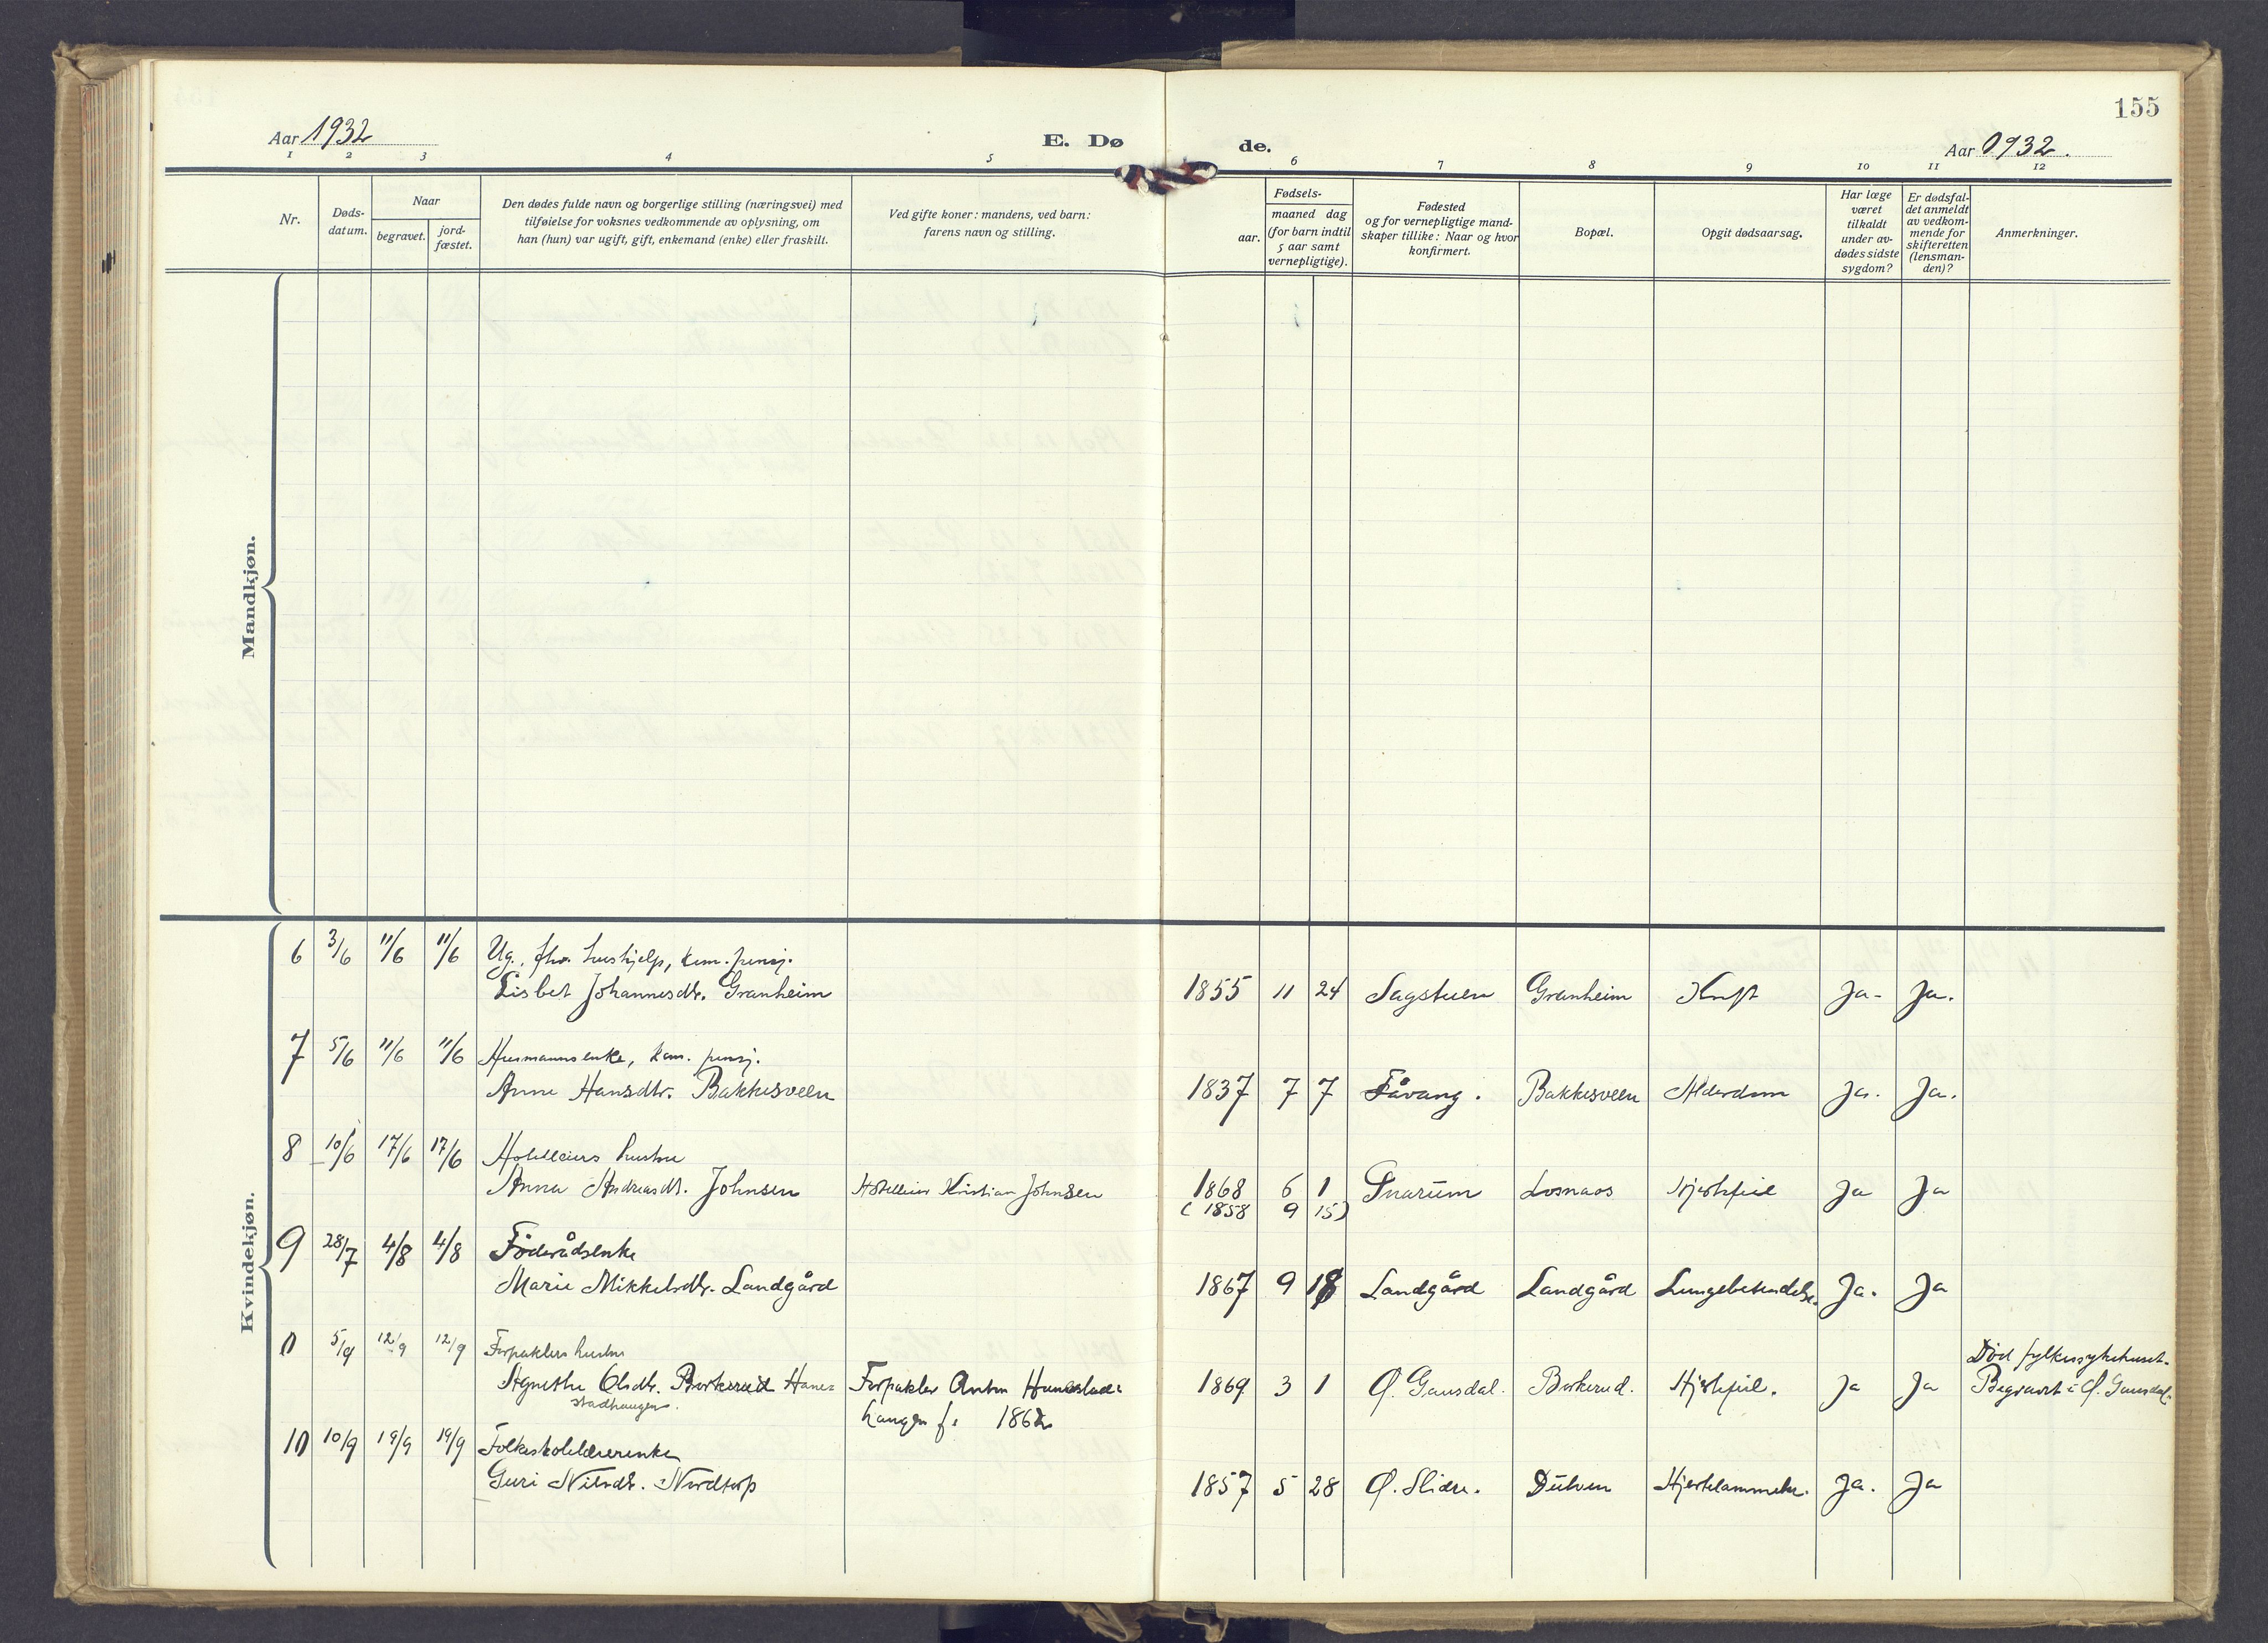 155
Aar 1932
E. Dø
de.
Aar 1932.
1 2 3 4 5 6 7 8 9 10 11 12
Nr.
Døds-
datum.
Naar
begravet.
jord-
fæstet.
Den dødes fulde navn og borgerlige stilling (næringsvei) med
tilføielse for voksnes vedkommende av oplysning, om
han (hun) var ugift, gift, enkemand (enke) eller fraskilt.
Ved gifte koner: mandens, ved barn:
farens navn og stilling.
Fødsels-
aar.
maaned dag
(for barn indtil
5 aar samt
vernepligtige).
Fødested
og for vernepligtige mand-
skaper tillike: Naar og hvor
konfirmert.
Bopæl.
Opgit dødsaarsag.
Har læge
været
tilkaldt
under av-
dødes sidste
sygdom?
Er dødsfal-
det anmeldt
av vedkom-
mende for
skifteretten
(lensman-
den)?
Anmerkninger.
Mandkjøn.
Kvindekjøn.
6 3/6 11/6 11/6 Ug., fhv. hushjelp, kom. pensj.
Lisbet Johannesdtr. Granheim 1855 11 24 Sagstuen Granheim Kreft Ja- Ja.
7 5/6 11/6 11/6 Husmannsenke, kom. pensj.
Anne Hansdtr. Bakkesveen 1837 7 7 Fåvang. Bakkesveen Alderdom Ja. Ja.
8 10/6 17/6 17/6 Hotelleiers hustru
Anna Andreasdt. Johnsen Hotelleier Kristian Johnsen 1868 6 1 Snarum Losnaos Hjertefeil Ja Ja
(1858 9 15)
9 28/7 4/8 4/8 Föderådsenke
Marie Mikkelsdtr. Landgård 1867 9 18 Landgård Landgård Lungebetendelse. Ja. Ja
0 5/9 12/9 12/9 Forpakters hustru
Død fylkessykehuset.
Agnethe Olsdtr. Berkerud Hane= Forpakter Anton Hanestad= 1869 3 1 Ø. Gausdal. Berkerud. Hjertefeil. Ja Ja Begravet i Ø. Gausdal.
stadhaugen.
haugen f. 1862
10 10/9 19/9 19/9 Folkeskolelærerenke
Guri Nilsdt. Nordtorp 1857 5 28 Ø. Slidre. Dulven Hjertelammelse. Ja. Ja